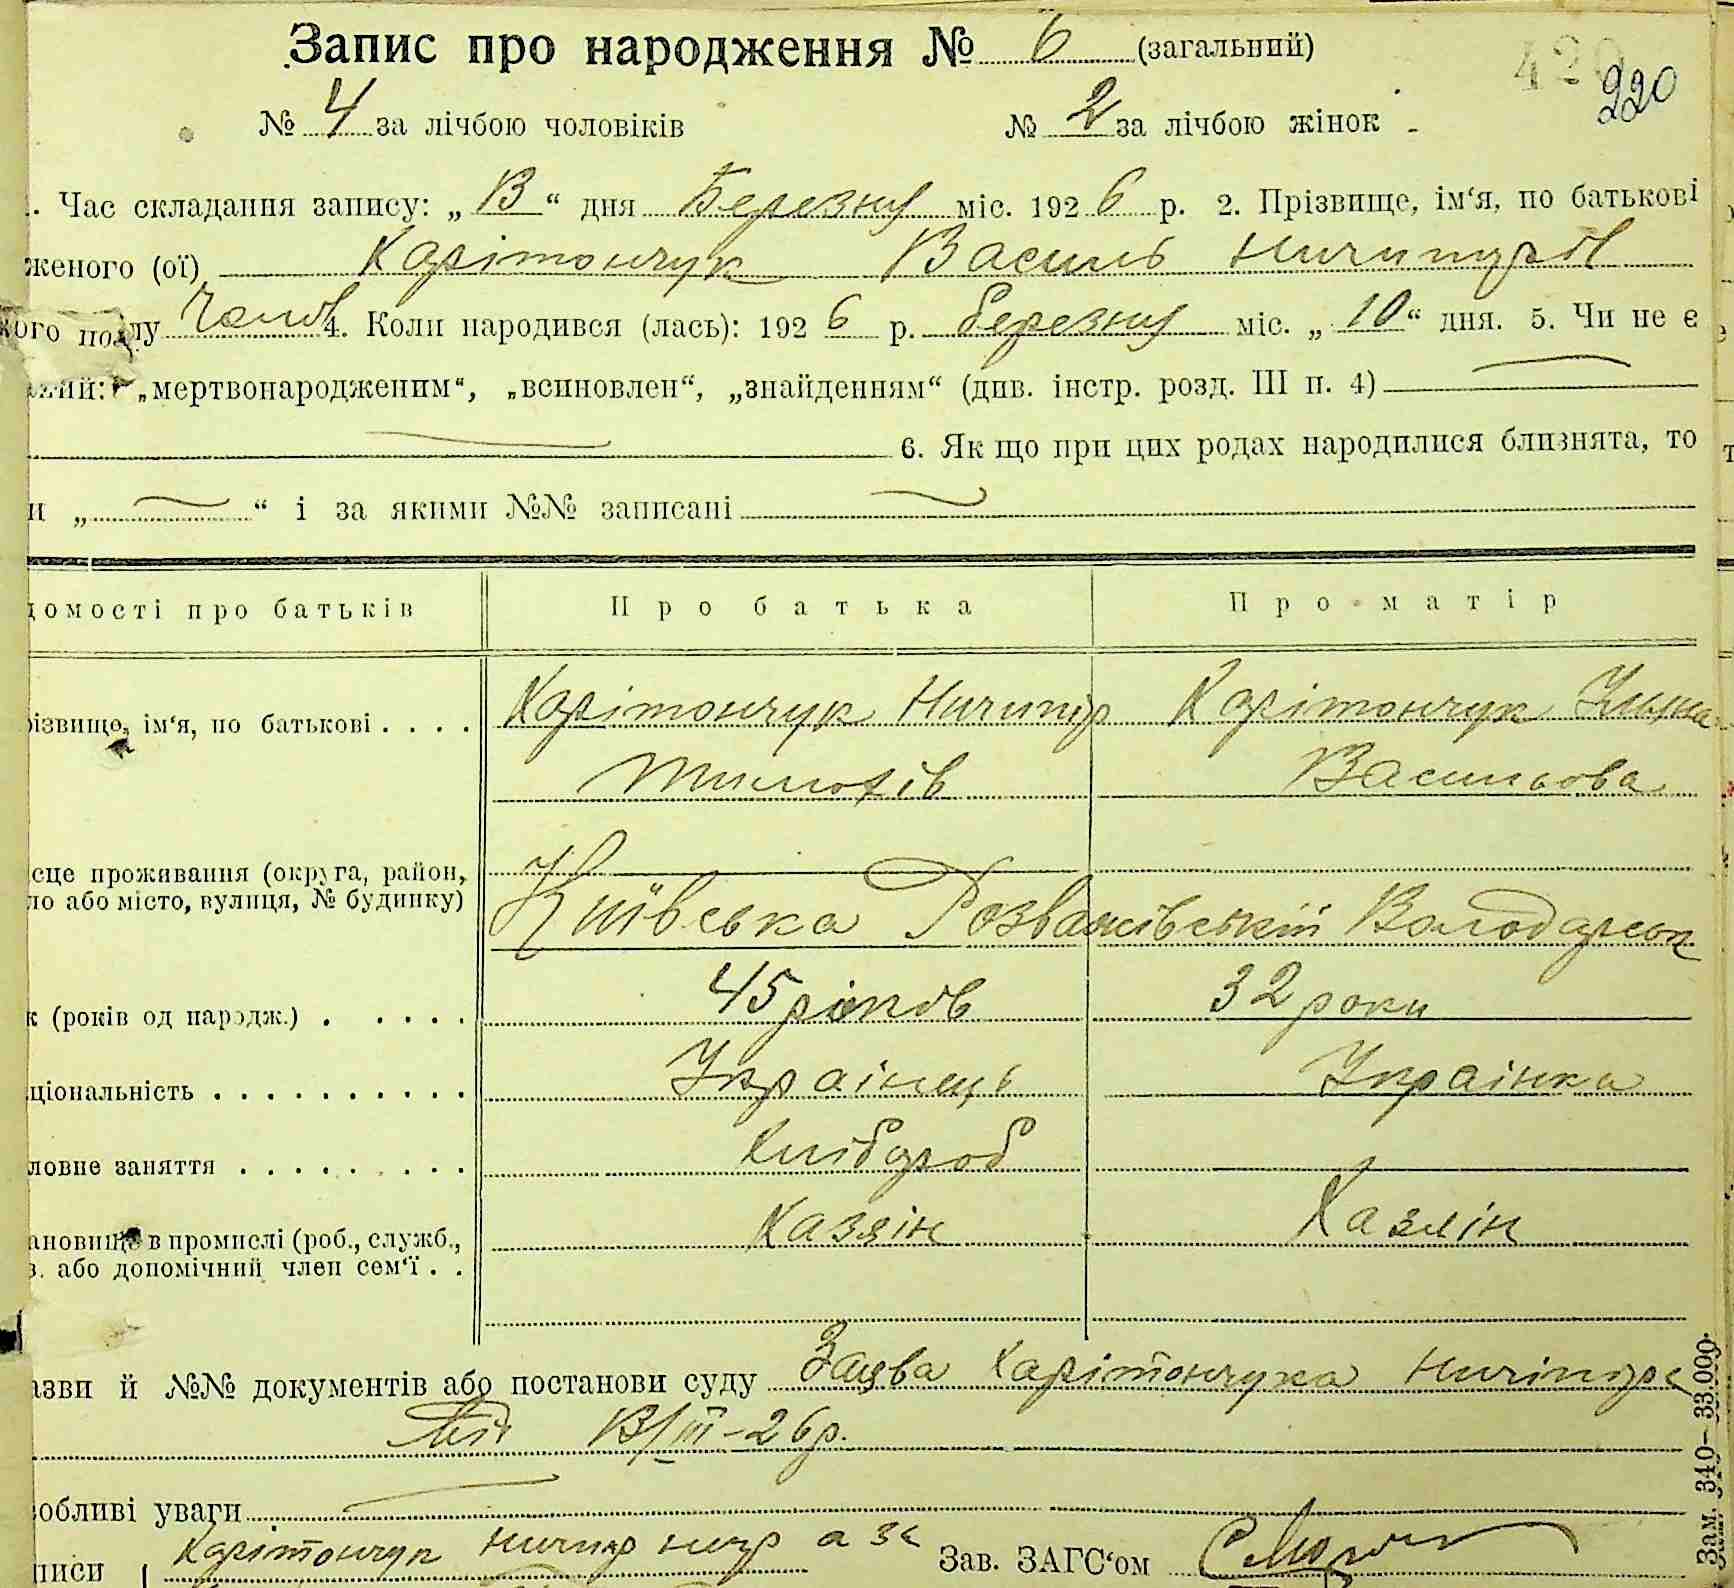 Запис про народження № 6 (загальний)
420
220
№ 4 за лічбою чоловіків № 2 за лічбою жінок
. Час складання запису: „13“ дня Березня міс. 1926 р. 2. Прізвище, ім‘я, по батькові
женого (ої) Харітончук Василь Ничипорів
кого полу Чолов 4. Коли народився (лась): 1926 р. березня міс. „10“ дня. 5. Чи не є
„мертвонародженим“, „всиновлен“, „знайденням“ (див. інстр. розд. III п. 4)
6. Як що при цих родах народилися близнята, то
и „ “ і за якими №№ записані
домості про батьків Про батька Про матір
різвище, ім‘я, по батькові . . . . Харітончук Ничипір Харітончук
Тимохів Васильова
сце проживання (округа, район,
ло або місто, вулиця, № будинку) Київська Розважівський
к (років од народж.) . . . . . 45 років 32 роки
ціональність . . . . . . . . . . Українець Українка
ловне заняття . . . . . . . . . Хлібороб
ановище в промислі (роб., служб., Хазяін Хазяін
з. або допомічний член сем‘ї . .
азви й №№ документів або постанови суду Заява Харітончука Ничіпора
від 13/III-26р.
обливі уваги
писи Харітончук Ничипір а за Зав. ЗАГС‘ом
Зам. 340–33.000.